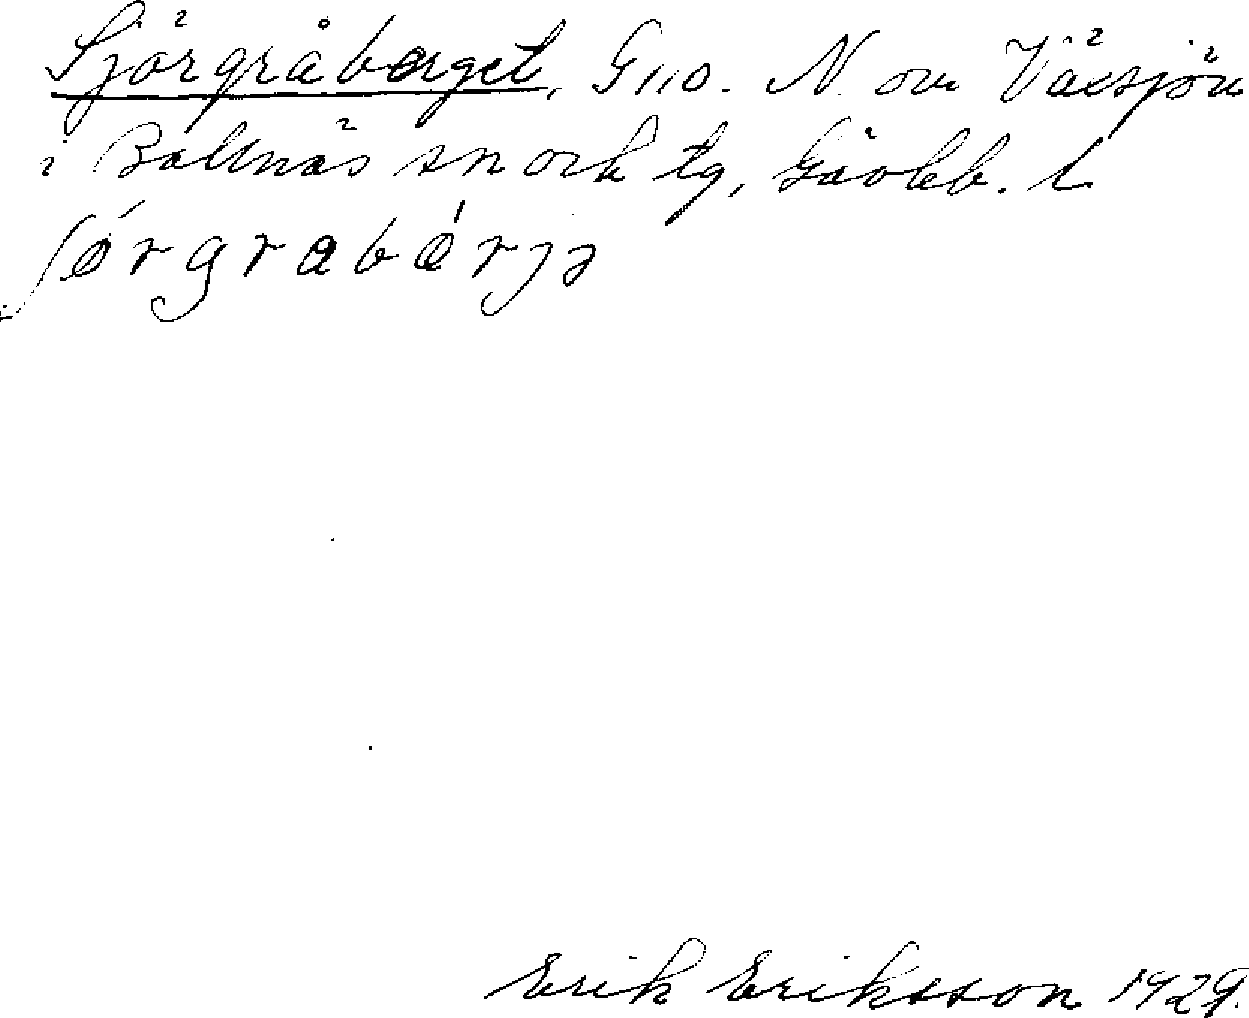 Sjörgråberget, G 110. N. om Växsjön
i Bollnäs sn och tg, Gävleb. l
ʃǿrgrabǽrjə
Erik Eriksson 1929.